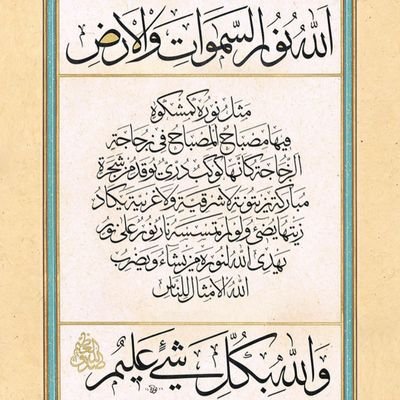 الله نور السموات والارض
مثل نوره كمشكوة
فيها مصباح المصباح في زجاجة
الزجاجة كانها كوكب دري يوقد من شجرة
مباركة زيتونة لا شرقية ولا غربية يكاد
زيتها يضيء ولو لم تمسسه نار نور على نور
يهدي الله لنوره من يشاء ويضرب
الله الامثال للناس
والله بكل شيء عليم